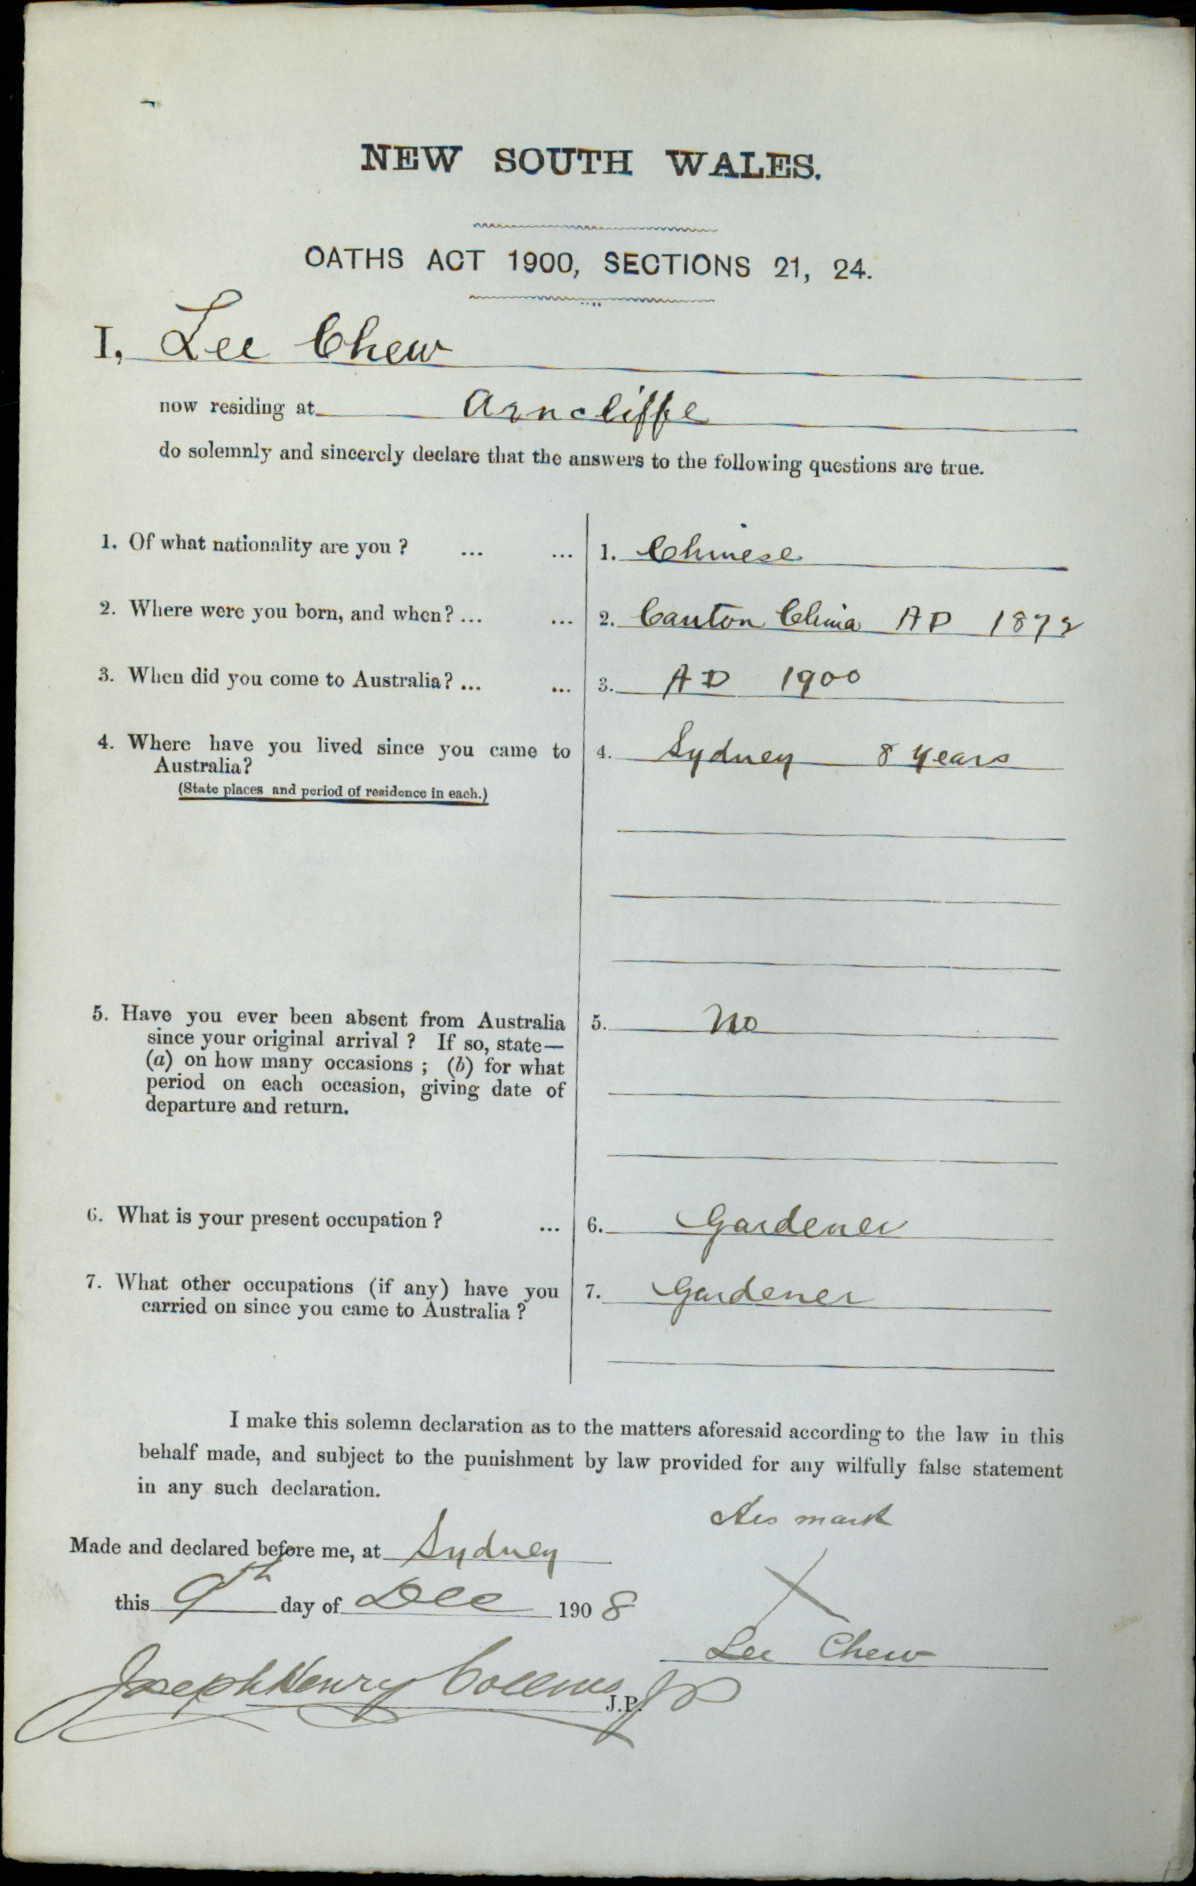 NEW SOUTH WALES.
OATHS ACT 1900, SECTIONS 21, 24.
I, Lee Chew
now residing at Arncliffe
do solemnly and sincerely declare that the answers to the following questions are true.
1. Of what nationality are you ? ... ... 1. Chinese
2. Where were you born, and when? ... ... 2. Canton China AD 1872
3. When did you come to Australia? ... ... 3. AD 1900
4. Where have you lived since you came to 4. Sydney 8 years
Australia?
(State places and period of residence in each.)
5. Have you ever been absent from Australia 5. No
since your original arrival ? If so, state—
(a) on how many occasions ; (b) for what
period on each occasion, giving date of
departure and return.
6. What is your present occupation ? ... 6. Gardener
7. What other occupations (if any) have you 7. Gardener
carried on since you came to Australia ?
I make this solemn declaration as to the matters aforesaid according to the law in this
behalf made, and subject to the punishment by law provided for any wilfully false statement
in any such declaration.
His mark
Made and declared before me, at Sydney
X
this 9th day of Dec 1908
Lee Chew
Joseph Henry Collins J.P. JP